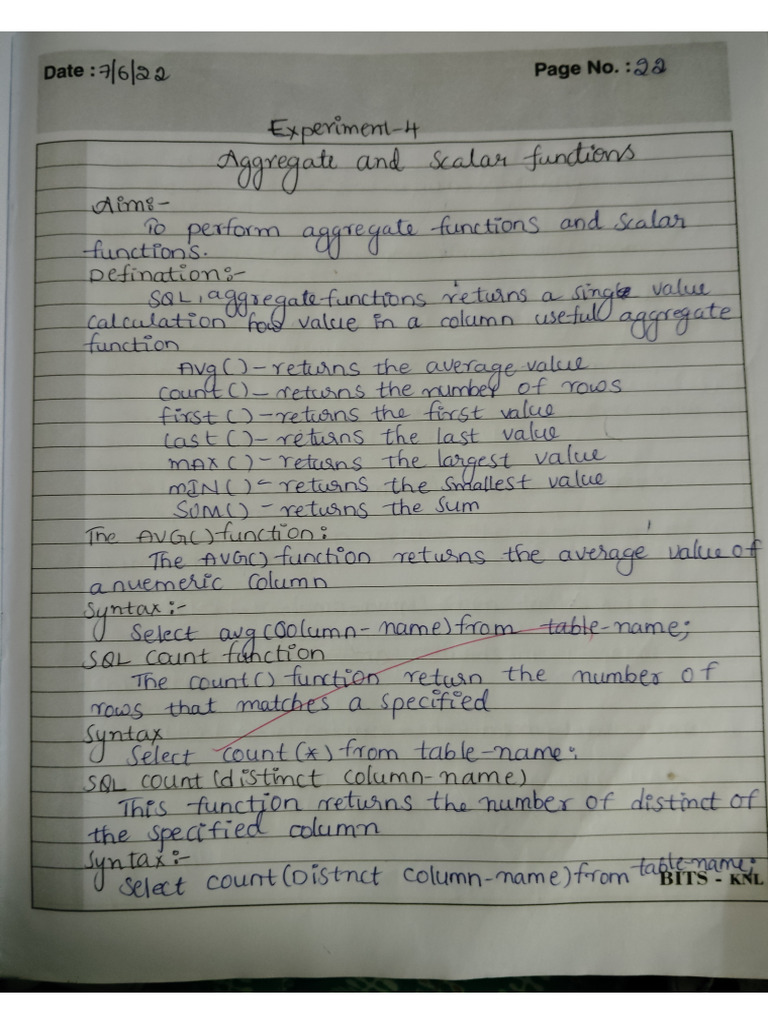 Date : 7/6/22 Page No. : 22
Experiment-4
Aggregate and scalar functions
Aim:-
To perform aggregate functions and scalar
functions.
Defination:-
SQL, aggregate functions returns a single value
calculation value in a column useful aggregate
function
Avg() - returns the average value
count() - returns the number of rows
first() - returns the first value
last() - returns the last value
MAX() - returns the largest value
MIN() - returns the smallest value
SUM() - returns the sum
The AVG() function:
The AVG() function returns the average value of
a nuemeric column
Syntax:-
Select avg(column-name) from table-name;
SQL count function
The count() function return the number of
rows that matches a specified
Syntax
Select count(*) from table-name;
SQL count (distinct column-name)
This function returns the number of distinct of
the specified column
Syntax:-
Select count(Distnct column-name) from table-name;
BITS - KNL